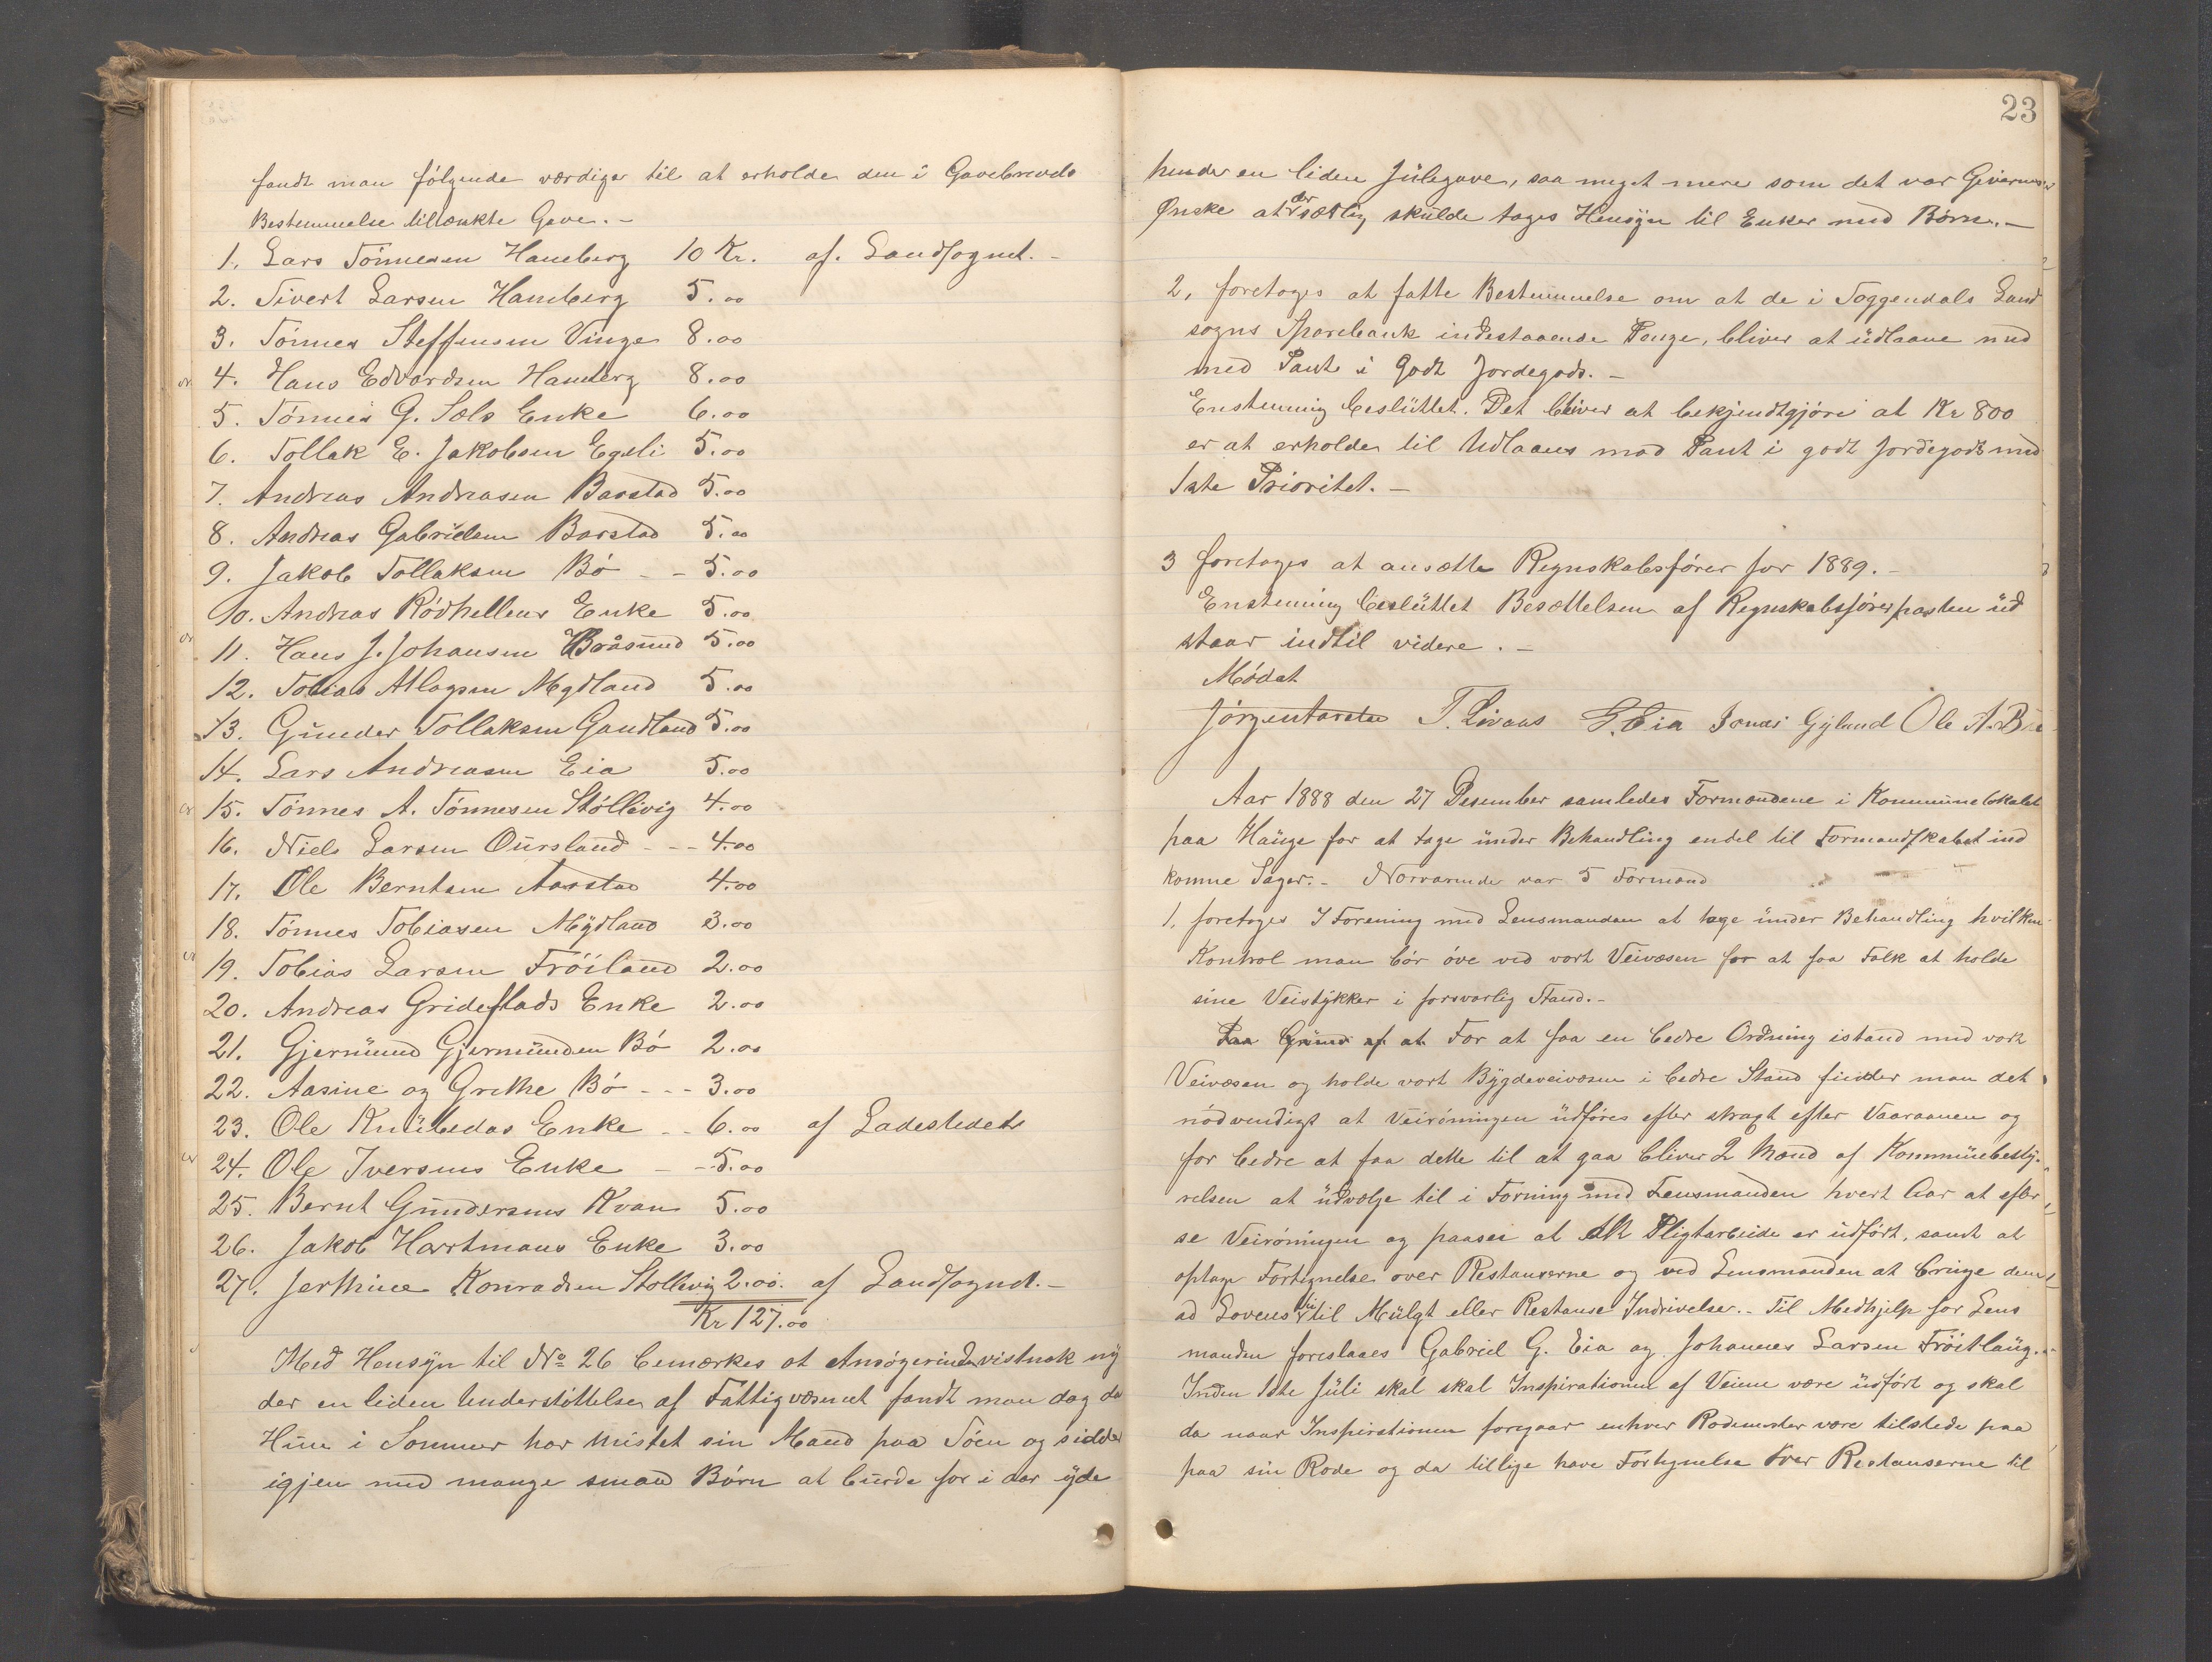 fandt man følgende værdiger til at erholde den i Gavebrevets
Bestemmelse tiltænkte Gave. –
1. Lars Tönnesen Hamberg 10 Kr. af. Landsognet. –
2. Sivert Larsen Hamberg 5.00
3. Tönnes Steffensen Vinge 8.00
4. Hans Edvardsen Hamberg 8.00
5. Tönnes G. Sæls Enke 6.00
6. Tollak E. Jakobsen Egeli 5.00
7. Andreas Andreasen Barstad 5.00
8. Andreas Gabrielsen Barstad 5.00
9. Jakob Tollaksen Bö – – 5.00
10. Andreas Rödhellens Enke 5.00
11. Hans J. Johansen Bråsund 5.00
12. Tobias Atlagsen Mydland 5.00
13. Gunder Tollaksen Gandland 5.00
14. Lars Andreasen Eia 5.00
15. Tönnes A. Tönnesen Stöllevig 4.00
16. Niels Larsen Oursland – – – 4.00
17. Ole Berntsen Aarstad 4.00
18. Tönnes Tobiasen Mydland 3.00
19. Tobias Larsen Fröiland 2.00
20. Andreas Gridestads Enke 2.00
21. Gjermund Gjermunden Bö 2.00
22. Aasine og Grethe Bö – – – 3.00
23. Ole Knubedas Enke – – 6.00 af Ladestedet
24. Ole Iversens Enke – – 5.00
25. Bernt Gundersens Kvan 5.00
26. Jakob Hartmans Enke 3.00
27. Jerthine Konradsen Stollevig 2.00. af Landsognet. –
Kr 127.00
Med Hensyn til No 26 bemærkes at Ansögerinden vistnok ny
der en liden Understöttelse af Fattigvæsenet fandt man dog da
Hun i Sommer har mistet sin Mand paa Söen og sidder
igjen med mange smaa Börn at burde for i aar yde
23
hende en liden Julegave, saa meget mere som det var Givernes
Ønske at der særlig skulde tages Hensyn til Enker med Børn. –
2, foretoges at fatte Bestemmelse om at de i Soggendals Land
sogns Sparebank indestaaende Penge, bliver at udlaane med
med Pant i Godt Jordegods. –
Enstemmig besluttet. Det bliver at bekjendtgjöre at Kr 800
er at erholde til Udlaans mod Pant i godt Jordegods med
1ste Prioritet. –
3 foretoges at ansætte Regnskabsförer for 1889. –
Enstemmig besluttet Besættelsen af Regnskabsförerposten ud
staar indtil videre. –
Mödet
Jörgen Aarstad T. Livaas G. Eia Jonas Gyland Ole A. Bö
Aar 1888 den 27 Desember samledes Formændene i Kommunelokalet
paa Hauge for at tage under Behandling endel til Formandskabet ind
komne Sager. – Nærværende var 5 Formænd
1, foretoges I Forening med Lensmanden at tage under Behandling hvilken
Kontrol man bör öve ved vort Veivæsen for at faa Folk at holde
sine Veistykker i forsvarlig Stand. –
Paa Grund af at For at faa en bedre Ordning istand med vort
Veivæsen og holde vort Bygdeveivæsen i bedre Stand finder man det
nödvendigt at Veiröningen udföres efter stragt efter Vaaraanen og
for bedre at faa dette til at gaa bliver 2 Mænd af Kommunebesty-
relsen at udvælge til i Forning med Lensmanden hvert Aar at efter
se Veiröningen og paaser at alt Pligtarbeide er udfört, samt at
optage Fortegnelse over Restanserne og ved Lensmanden at bringe dem
ad Lovens vei til Mulgt eller Restanse Indrivelse. – Til Medhjelp for Lens
manden foreslaaes Gabriel G. Eia og Johannes Larsen Fröitlaug. –
Inden 1ste Juli skal skal Inspirationen af Veiene være udfört og skal
da naar Inspirationen foregaar enhver Rodemester være tilstede paa
paa sin Rode og da tillige have Fortegnelse over Restanserne til